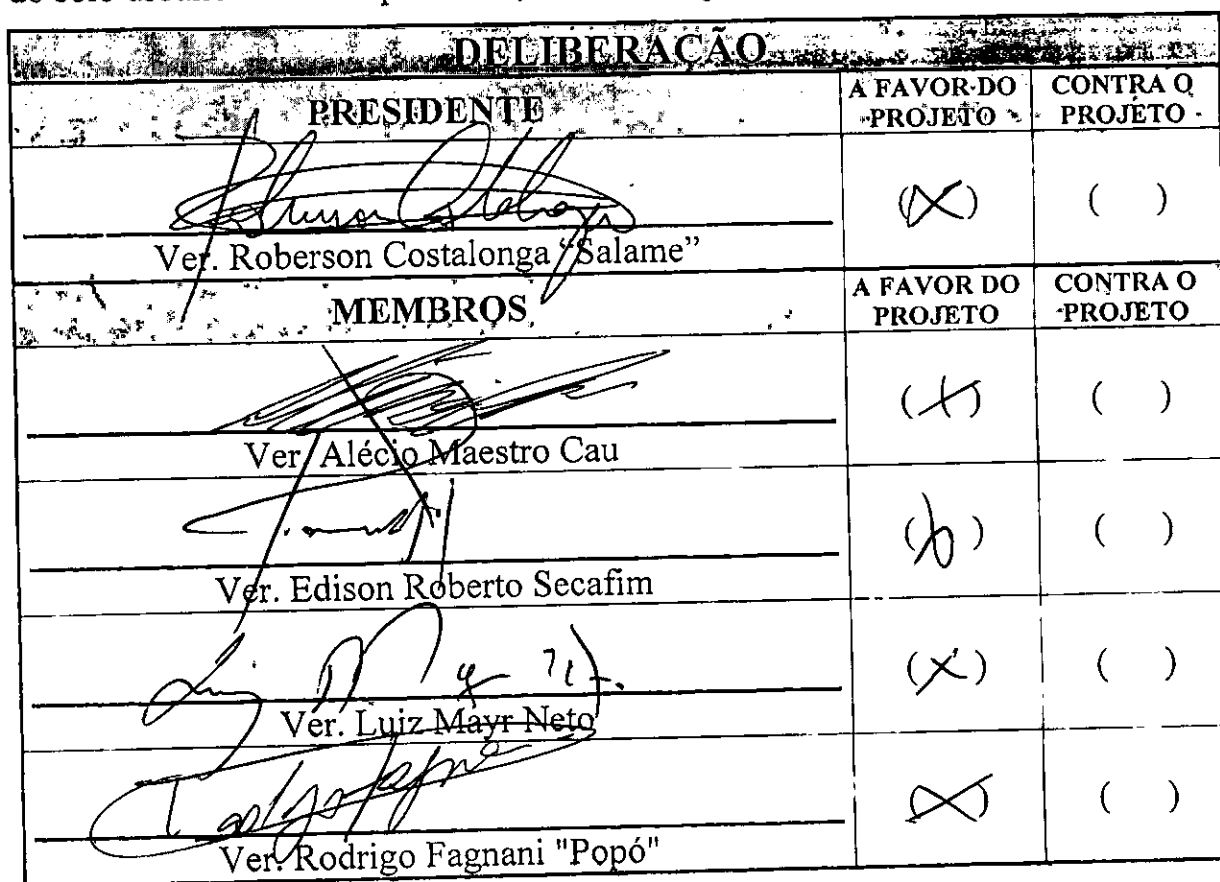 DELIBERAÇÃO
PRESIDENTE
A FAVOR DO PROJETO
CONTRA O PROJETO
(X) ( )
Ver. Roberson Costalonga "Salame"
MEMBROS
A FAVOR DO PROJETO
CONTRA O PROJETO
(X) ( )
Ver. Alécio Maestro Cau
(X) ( )
Ver. Edison Roberto Secafim
(X) ( )
Ver. Luiz Mayr Neto
(X) ( )
Ver. Rodrigo Fagnani "Popó"